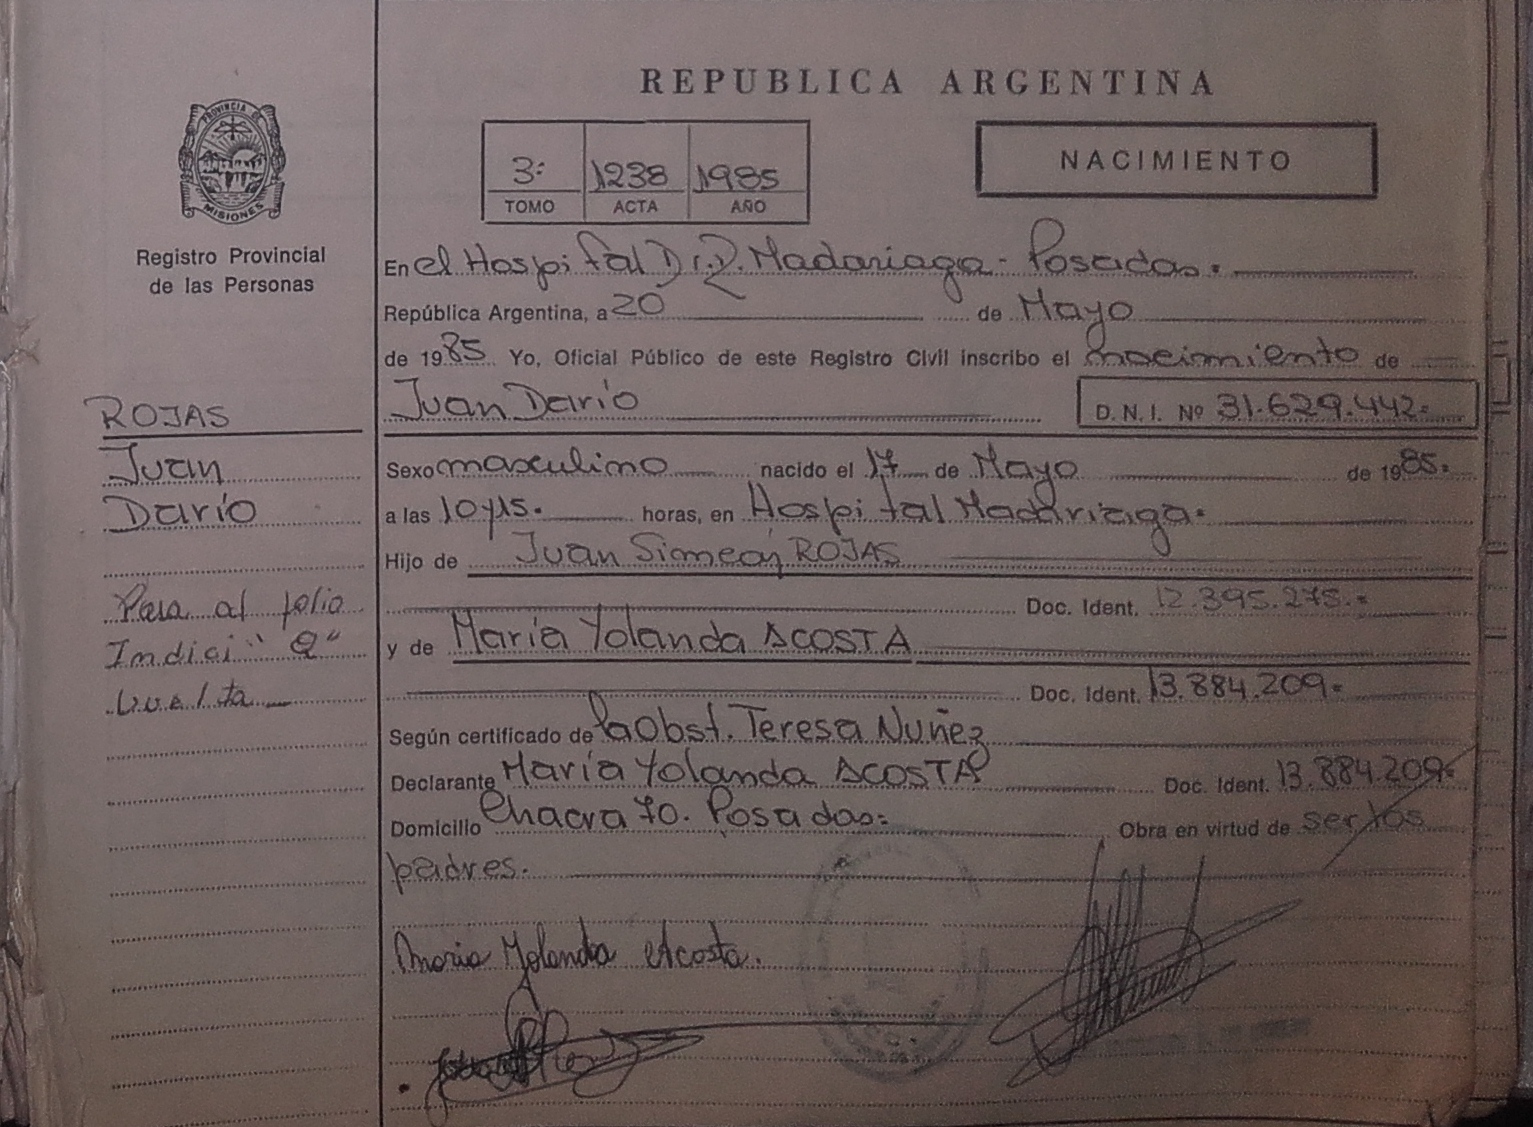 REPUBLICA ARGENTINA
PROVINCIA DE
MISIONES
Registro Provincial
de las Personas
3: 1238 1985
TOMO ACTA AÑO
NACIMIENTO
En el Hospital Dr. R. Madariaga - Posadas.
República Argentina, a 20 de Mayo
de 1985. Yo, Oficial Público de este Registro Civil inscribo el nacimiento de
Juan Darío D.N.I. Nº 31.629.442
ROJAS
Juan
Darío
Sexo masculino nacido el 17 de Mayo de 1985.
a las 10 y 15. horas, en Hospital Madariaga.
Hijo de Juan Simeón ROJAS
Doc. Ident. 12.395.275.
y de María Yolanda ACOSTA
Doc. Ident. 13.884.209
Pasa al folio
Indici "Q"
Vuelta
Según certificado de la Obst. Teresa Nuñez
Declarante María Yolanda ACOSTA Doc. Ident. 13.884.209
Domicilio Chacra 70. Posadas: Obra en virtud de ser los
padres.
Maria Yolanda Acosta.